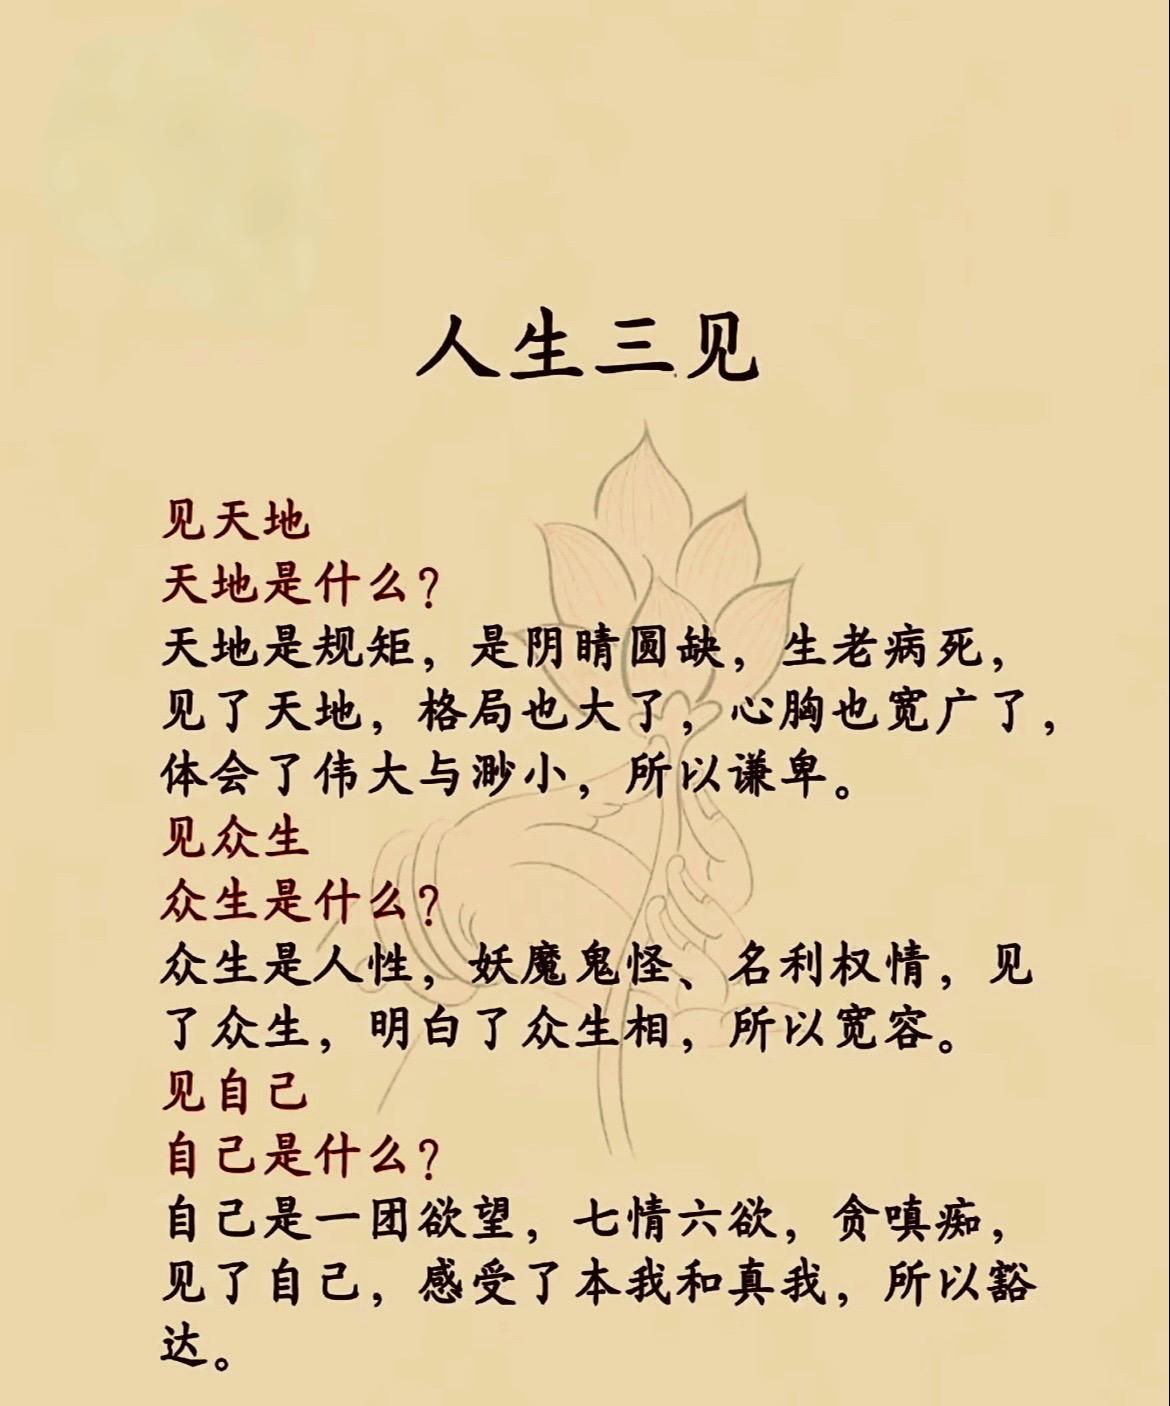 人生三见
见天地
天地是什么？
天地是规矩，是阴晴圆缺，生老病死，
见了天地，格局也大了，心胸也宽广了，
体会了伟大与渺小，所以谦卑。
见众生
众生是什么？
众生是人性，妖魔鬼怪、名利权情，见
了众生，明白了众生相，所以宽容。
见自己
自己是什么？
自己是一团欲望，七情六欲，贪嗔痴，
见了自己，感受了本我和真我，所以豁
达。